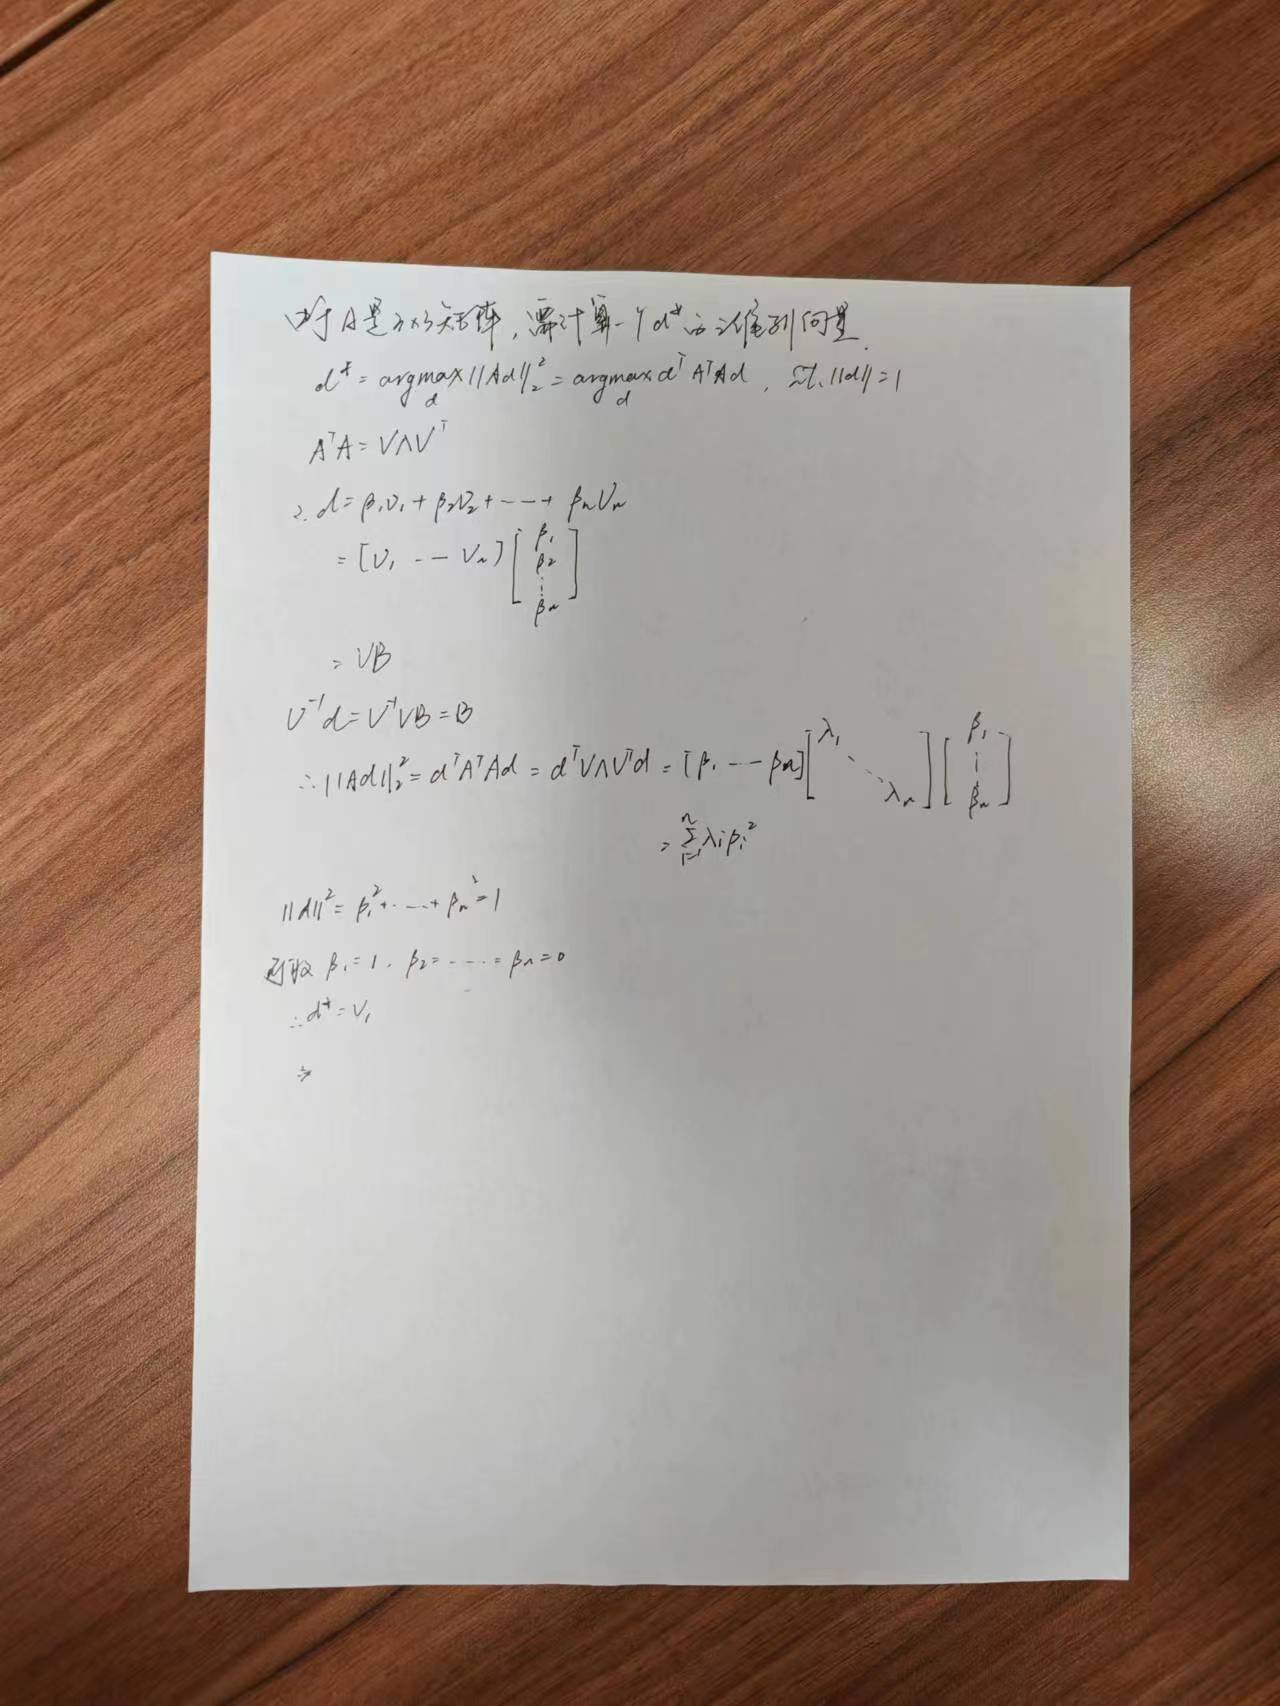 由于A是3×3矩阵，需计算一个d*的三维列向量.
d* = argmax_d ||Ad||₂² = argmax_d dᵀAᵀAd , s.t. ||d|| = 1
AᵀA = VΛVᵀ
∴ d = β₁v₁ + β₂v₂ + ---- + βₙvₙ
= [v₁ --- vₙ] [β₁ β₂ ⋮ βₙ]
= VB
V⁻¹d = V⁻¹VB = B
∴ ||Ad||₂² = dᵀAᵀAd = dᵀVΛVᵀd = [β₁ --- βₙ] [λ₁ ⋱ λₙ] [β₁ ⋮ βₙ]
= Σⁿᵢ₌₁ λᵢβᵢ²
||d||² = β₁² + ---- + βₙ² = 1
可取 β₁ = 1 , β₂ = ----- = βₙ = 0
∴ d* = v₁
⇒